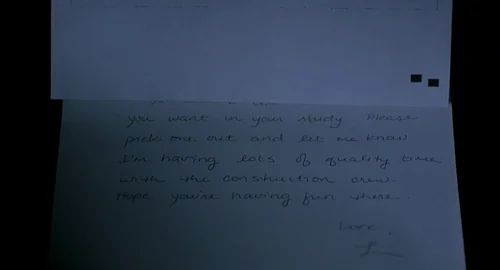 you want in your study Please
pick one out and let me know
I'm having lots of quality time
with the construction crew.
Hope you're having fun there.
Love,